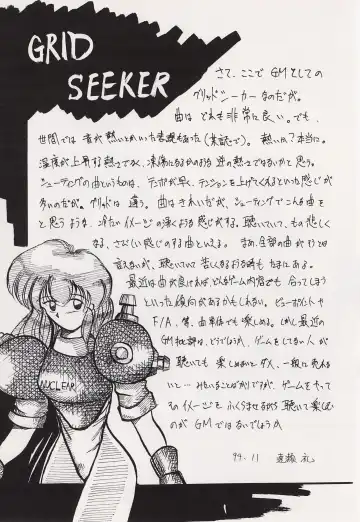 GRID
SEEKER
さて、ここでGMとしての
グリッドシーカーなのだが。
曲はどれも非常に良い。でも、
世間では音が熱いとかいった表現もあった(某誌で)。熱いか?本当に。
温度が上昇する熱さでなく、凍傷になるかのような逆の熱さではないかと思う。
シューティングの曲というものは、テンポが早く、テンションを上げてくれるといった感じが
多いのだが。グリッドは違う。曲はきれいだが、シューティングでこんな曲を
と思うような、冷たいイメージの湧くような感じがする。聴いていて、もの悲しく
なる、さびしい感じのする曲といえる。まあ、全部の曲がそうとは
言えないが、聴いていて苦しくなるような時もたまにある。
最近は曲が良ければどんなゲーム内容でも合ってしまう
といった傾向があるかもしれない。ビューポイントや
F/A、等、曲単体でも楽しめる。しかし最近の
GM批評は、どうでしょうか、ゲームをしてない人が
聴いても楽しめないとダメ、一般に売れな
いと…みたいなことばかりですが、ゲームをやって
そのイメージをふくらませながら聴いて楽しむ
のがGMではないでしょうか
94.11
NUCLEAR